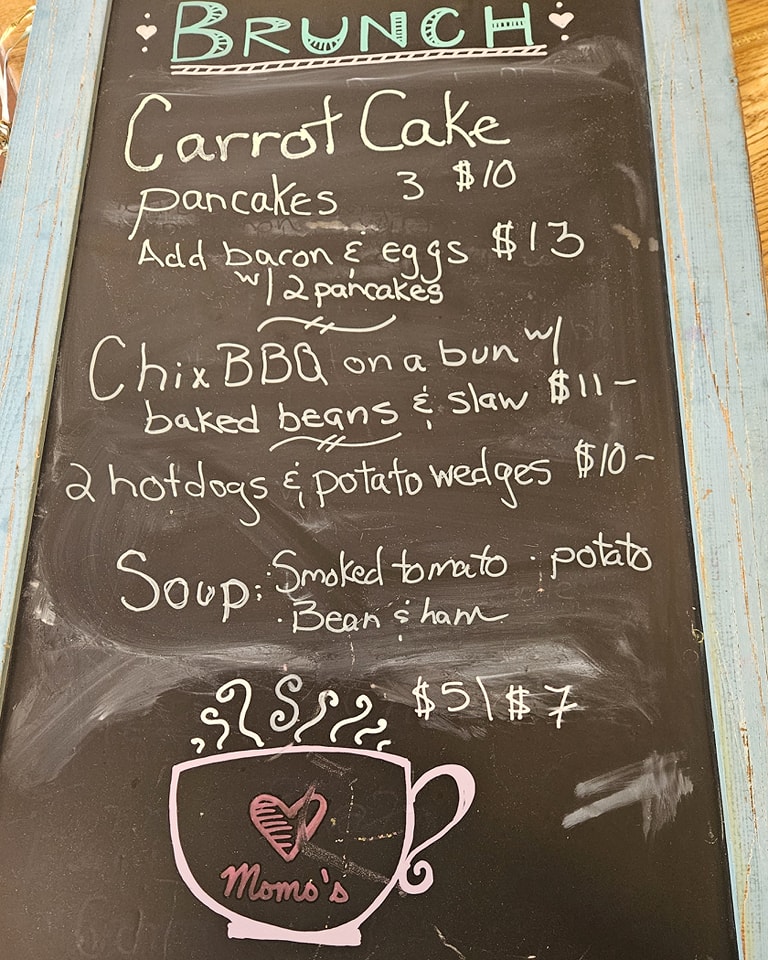 BRUNCH
Carrot Cake
pancakes 3 $10
Add bacon & eggs $13
w/ 2 pancakes
Chix BBQ on a bun w/
baked beans & slaw $11-
2 hotdogs & potato wedges $10-
Soup: · Smoked tomato · potato
· Bean & ham
$5\$7
Momo's